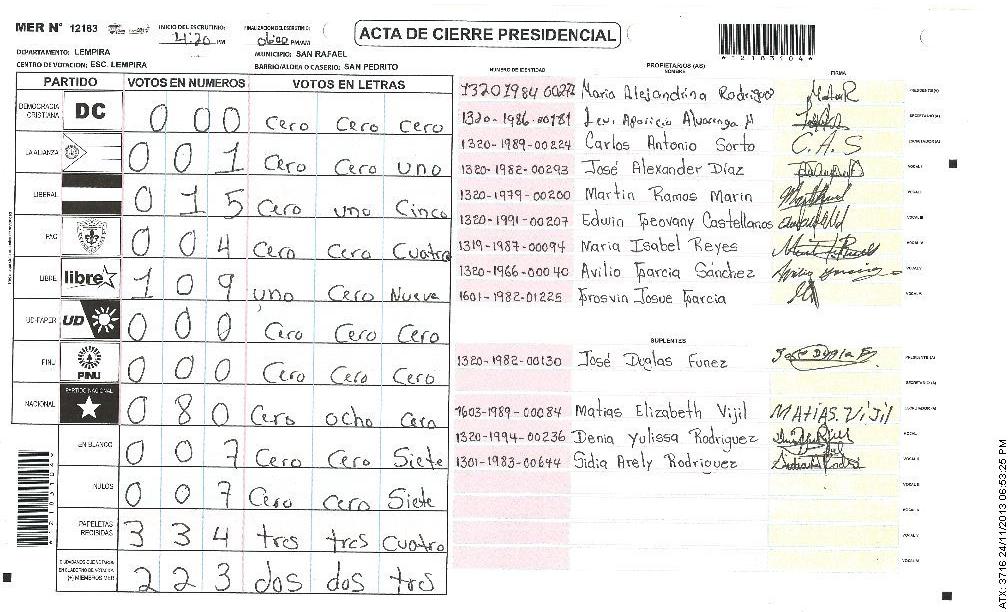 MER N° 12183 INICIO DEL ESCRUTINIO: 4:20 PM FINALIZACION DEL ESCRUTINIO: 06:00 PM/AM
ACTA DE CIERRE PRESIDENCIAL
*1218304*
DEPARTAMENTO: LEMPIRA MUNICIPIO: SAN RAFAEL
CENTRO DE VOTACION: ESC. LEMPIRA BARRIO/ALDEA O CASERIO: SAN PEDRITO
PARTIDO VOTOS EN NUMEROS VOTOS EN LETRAS
DEMOCRACIA CRISTIANA DC 0 0 0 Cero Cero Cero
LA ALIANZA 0 0 1 Cero Cero uno
LIBERAL 0 1 5 Cero uno Cinco
PAC 0 0 4 Cero Cero Cuatro
LIBRE libre 1 0 9 uno Cero Nueve
UD-FAPER UD 0 0 0 Cero Cero Cero
PINU PINU 0 0 0 Cero Cero Cero
NACIONAL PARTIDO NACIONAL 0 8 0 Cero ocho Cero
EN BLANCO 0 0 7 Cero Cero Siete
NULOS 0 0 7 Cero Cero Siete
PAPELETAS RECIBIDAS 3 3 4 tres tres Cuatro
(+) MIEMBROS MER 2 2 3 dos dos tres
NUMERO DE IDENTIDAD PROPIETARIOS (AS) NOMBRE FIRMA
Maria Alejandrina Rodriguez PRESIDENTE(A)
1320-1986-00181 Levi Aparicio Alvarenga M SECRETARIO(A)
1320-1989-00224 Carlos Antonio Sorto C.A.S ESCRUTADOR(A)
1320-1982-00293 José Alexander Díaz VOCAL I
1320-1979-00200 Martin Ramos Marin VOCAL II
1320-1991-00207 Edwin Geovany Castellanos VOCAL III
1319-1987-00094 Maria Isabel Reyes VOCAL IV
1320-1966-00040 Avilio Garcia Sánchez VOCAL V
1601-1982-01225 Grosvin Josue Garcia
SUPLENTES
1320-1982-00130 José Duglas Funez PRESIDENTE(A)
SECRETARIO(A)
1603-1989-00084 Matias Elizabeth Vijil MATIAS. VIJIL ESCRUTADOR(A)
1320-1994-00236 Denia Yulissa Rodriguez VOCAL I
1301-1983-00644 Sidia Arely Rodriguez VOCAL II
ATX: 3716 24/11/2013 06:53:25 PM